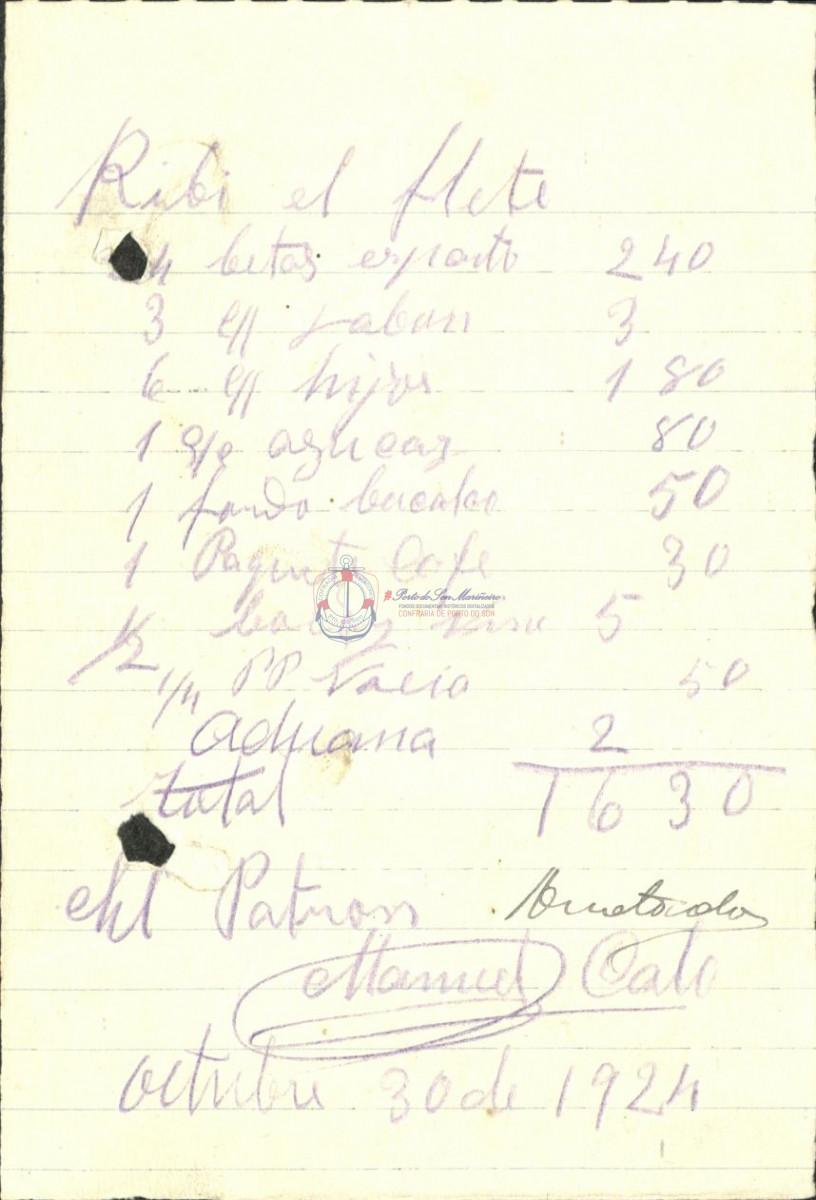 Ribi el flete
4 betas esparto 240
3 c/ jabon 3
6 c/ hijos 1 80
1 c/ azucar 80
1 fardo bacalao 50
1 Paquete Cafe 30
#PortodoSonMariñeiro
FONDOS DOCUMENTAIS HISTÓRICOS DIGITALIZADOS
CONFRARÍA DE PORTO DO SON
1/2 5
1/4 PP Vacio 50
aduana 2
total 16 30
El Patron
Manuel Calo
octubre 30 de 1924